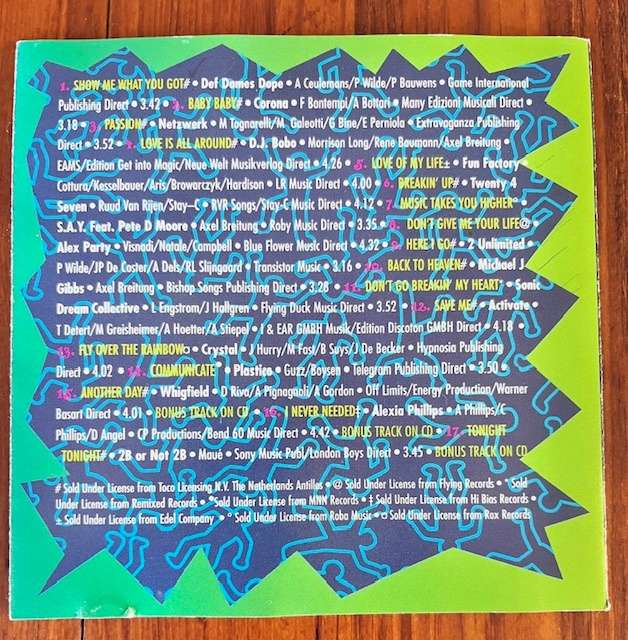 1. SHOW ME WHAT YOU GOT# • Def Dames Dope • A Ceulemans/P Wilde/P Bauwens • Game International
Publishing Direct • 3.42 • 2. BABY BABY# • Corona • F Bontempi/A Bottari • Many Edizioni Musicali Direct •
3.18 • 3. PASSION# • Netzwerk • M Tognarelli/M. Galeotti/G Bine/E Perniola • Extravaganza Publishing
Direct • 3.52 • 4. LOVE IS ALL AROUND# • D.J. Bobo • Morrison Long/Rene Baumann/Axel Breitung •
EAMS/Edition Get into Magic/Neue Welt Musikverlag Direct • 4.26 • 5. LOVE OF MY LIFE± • Fun Factory •
Cottura/Kesselbauer/Aris/Browarczyk/Hardison • LR Music Direct • 4.00 • 6. BREAKIN' UP# • Twenty 4
Seven • Ruud Van Rijen/Stay–C • RVR Songs/Stay-C Music Direct • 4.12 • 7. MUSIC TAKES YOU HIGHER° •
S.A.Y. Feat. Pete D Moore • Axel Breitung • Roby Music Direct • 3.35 • 8. DON'T GIVE ME YOUR LIFE@ •
Alex Party • Visnadi/Natale/Campbell • Blue Flower Music Direct • 4.32 • 9. HERE I GO# • 2 Unlimited •
P Wilde/JP De Coster/A Dels/RL Slijngaard • Transistor Music • 3.16 • 10. BACK TO HEAVEN# • Michael J
Gibbs • Axel Breitung • Bishop Songs Publishing Direct • 3.28 • 11. DON'T GO BREAKIN' MY HEART • Sonic
Dream Collective • L Engstrom/J Hallgren • Flying Duck Music Direct • 3.52 • 12. SAVE ME# • Activate •
T Detert/M Greisheimer/A Hoetter/A Stiepel • I & EAR GMBH Musik/Edition Discoton GMBH Direct • 4.18 •
13. FLY OVER THE RAINBOW¤ • Crystal • J Hurry/M Fast/B Suys/J De Becker • Hypnosia Publishing
Direct • 4.02 • 14. COMMUNICATE • Plastico • Guzz/Boysen • Telegram Publishing Direct • 3.50 •
15. ANOTHER DAY# • Whigfield • D Riva/A Pignagnoli/A Gordon • Off Limits/Energy Production/Warner
Basart Direct • 4.01 BONUS TRACK ON CD • 16. I NEVER NEEDED‡ • Alexia Phillips • A Phillips/C
Phillips/D Angel • CP Productions/Bend 60 Music Direct • 4.42 • BONUS TRACK ON CD • 17. TONIGHT
TONIGHT# • 2B or Not 2B • Maué • Sony Music Publ/London Boys Direct • 3.45 • BONUS TRACK ON CD
# Sold Under License from Toco Licensing N.V. The Netherlands Antilles • @ Sold Under License from Flying Records • Sold
Under License from Remixed Records • Sold Under License from MNW Records • ‡ Sold Under License from Hi Bias Records •
± Sold Under License from Edel Company • ° Sold Under License from Roba Music • ¤ Sold Under License from Rox Records